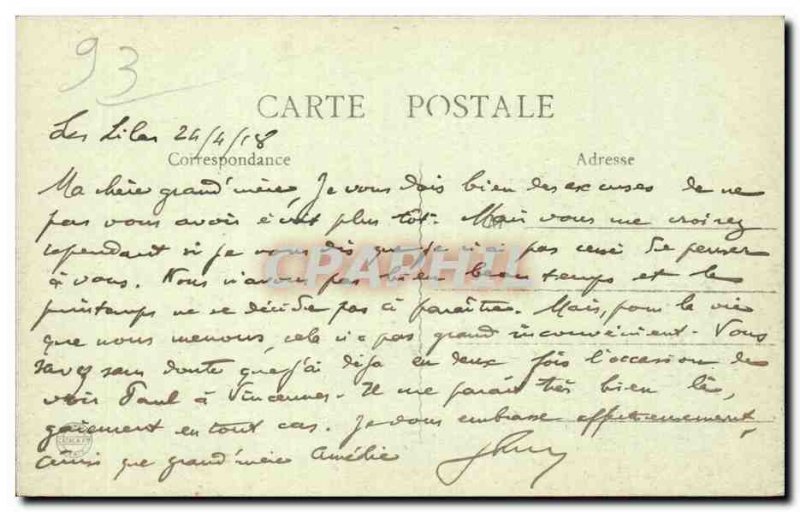 93
CARTE POSTALE
Les Lilas 24/4/18
Correspondance Adresse
Ma chère grand'mère, Je vous dois bien des excuses de ne
pas vous avoir écrit plus tôt. Mais vous me croirez
cependant si je vous dis que je n'ai pas cessé de penser
à vous. Nous n'avons pas bien beau temps et le
printemps ne se décide pas à paraître. Mais, pour la vie
que nous menons, cela n'a pas grand inconvénient. Vous
savez sans doute que j'ai déjà eu deux fois l'occasion de
voir Paul à Vincennes. Il me paraît très bien là,
gaiement en tout cas. Je vous embrasse affectueusement,
ainsi que grand'mère Amélie
CPARAMA